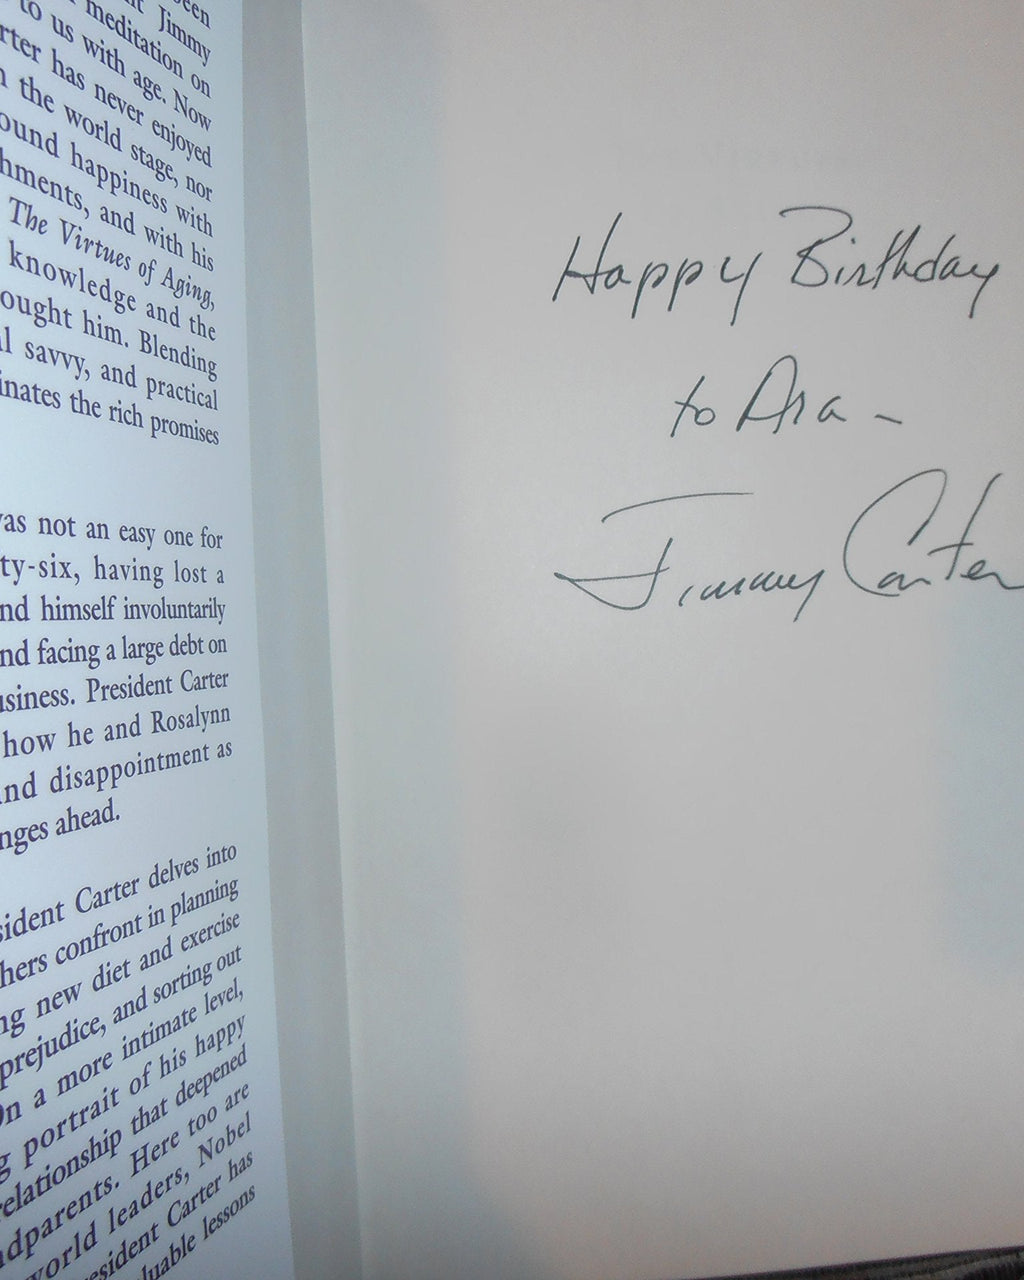 been
Jimmy
meditation on
to us with age. Now
rter has never enjoyed
the world stage, nor
ound happiness with
hments, and with his
The Virtues of Aging,
knowledge and the
ought him. Blending
al savvy, and practical
inates the rich promises
was not an easy one for
ty-six, having lost a
nd himself involuntarily
nd facing a large debt on
usiness. President Carter
how he and Rosalynn
and disappointment as
nges ahead.
sident Carter delves into
hers confront in planning
ng new diet and exercise
prejudice, and sorting out
On a more intimate level,
g portrait of his happy
relationship that deepened
ndparents. Here too are
world leaders, Nobel
esident Carter has
luable lessons
Happy Birthday
to Ara -
Jimmy Carter